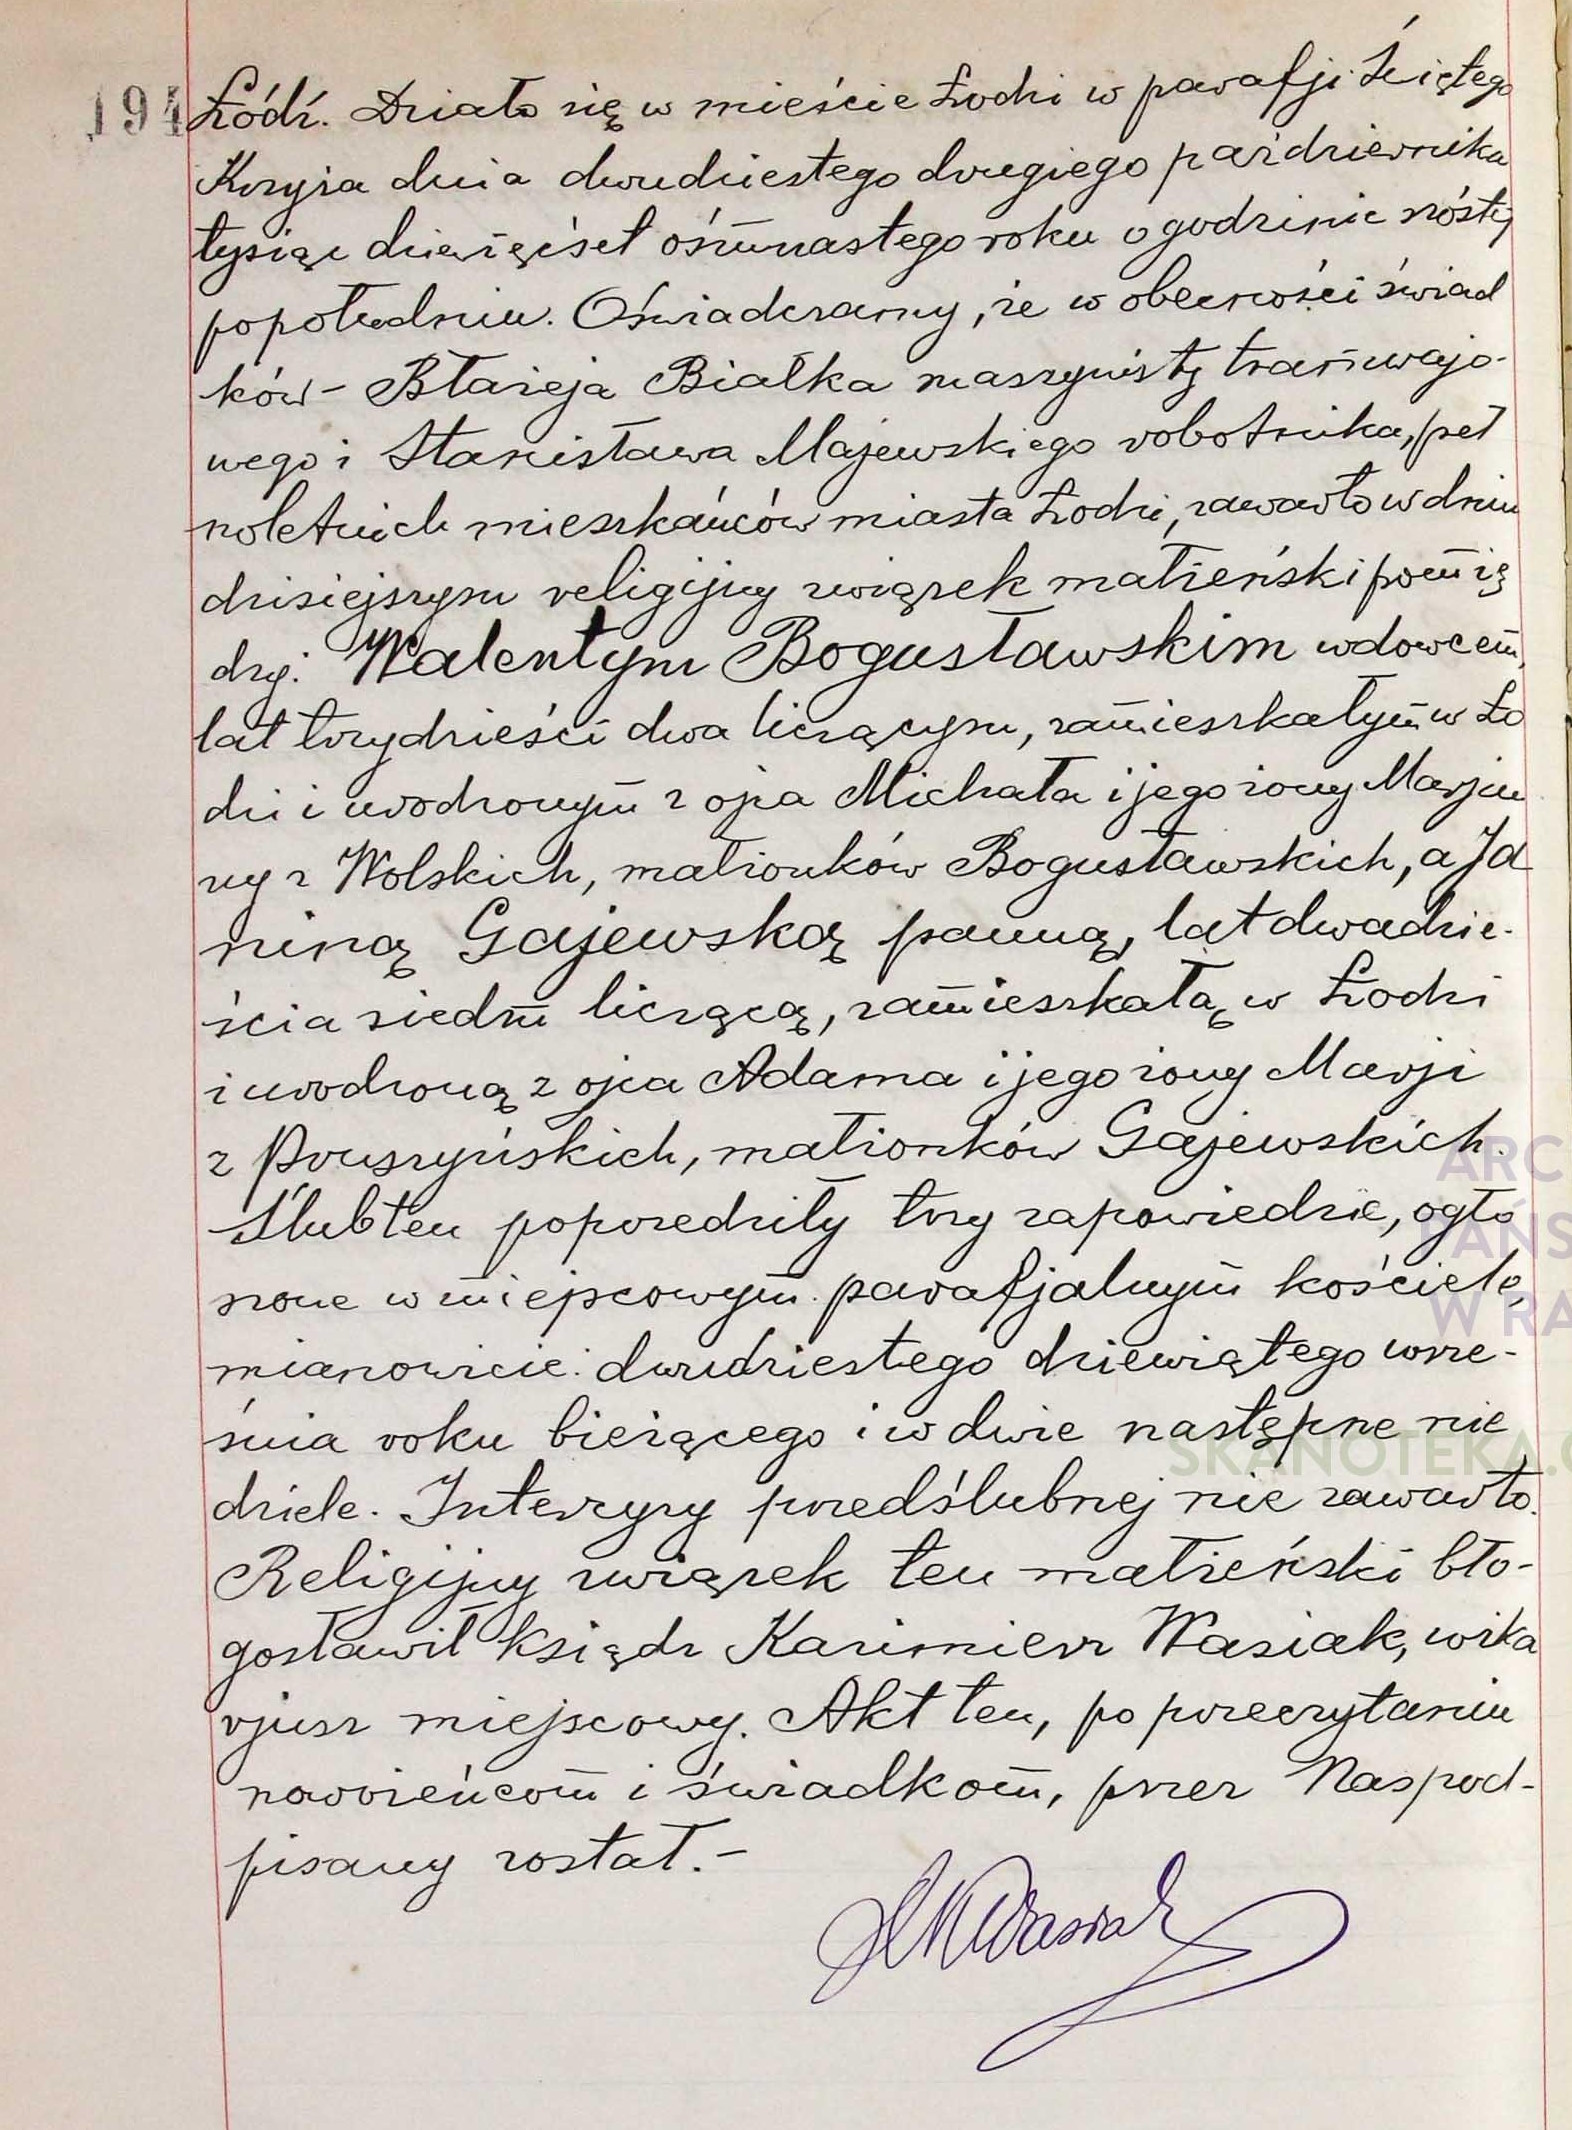 194 Łódź. Działo się w mieście Łodzi w parafji Świętego
Krzyża dnia dwudziestego drugiego października
tysiąc dziewięćset ośmnastego roku o godzinie szóstej
popołudniu. Oświadczamy, że w obecności świad
ków – Błażeja Białka maszynisty tramwajo-
wego i Stanisława Majewskiego robotnika, peł
noletnich mieszkańców miasta Łodzi, zawarto w dniu
dzisiejszym religijny związek małżeński pomię
dzy: Walentym Bogusławskim wdowcem,
lat trzydzieści dwa liczącym, zamieszkałym w Ło
dzi i urodzonym z ojca Michała i jego żony Marjan
ny z Wolskich, małżonków Bogusławskich, a Ja
niną Gajewską panną, lat dwadzie-
ścia siedm liczącą, zamieszkałą w Łodzi
i urodzoną z ojca Adama i jego żony Marji
z Pruszyńskich, małżonków Gajewskich.
Ślub ten poprzedziły trzy zapowiedzie, ogło
szone w miejscowym parafjalnym kościele,
mianowicie: dwudziestego dziewiątego wrze-
śnia roku bieżącego i w dwie następne nie
dziele. Intercyzy przedślubnej nie zawarto.
Religijny związek ten małżeński bło-
gosławił ksiądz Kazimierz Wasiak, wika
rjusz miejscowy. Akt ten, po przeczytaniu
nowożeńcom i świadkom, przez Nas pod-
pisany został.–
Wasiak
ARC
PAŃS
W RA
SKANOTEKA.